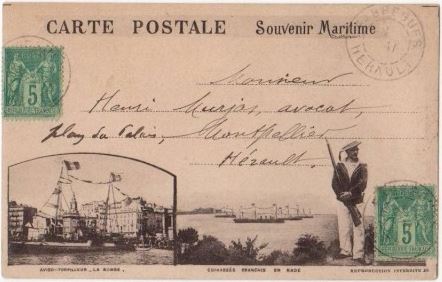 CARTE POSTALE Souvenir Maritime
HÉRAULT
5
Monsieur
Henri Murjas, avocat,
place du Palais, Montpellier
Hérault.
5
AVISO-TORPILLEUR „LA BOMBE„
CUIRASSÉS FRANÇAIS EN RADE
REPRODUCTION INTERDITE